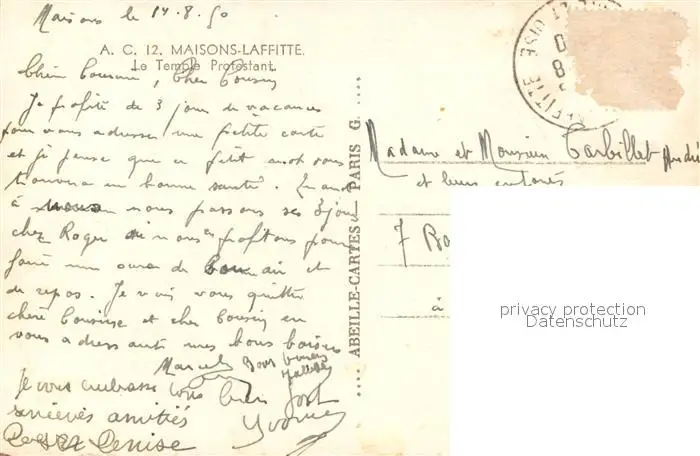 Maisons le 14.8.50
A. C. 12. MAISONS-LAFFITTE.
Le Temple Protestant.
Chère Cousine, Cher Cousin
Je profite de 3 jours de vacances
pour vous adresser une petite carte
et je pense que ce petit mot vous
trouvera en bonne santé. Quant
à nous nous passons ses 3 jours
chez Roger où nous en profitons pour
faire une cure de bon air et
de repos. Je vais vous quitter
chère Cousine et cher Cousin en
vous adressant mes bons baisers
Marcel
Bons baisers
Je vous embrasse tous bien fort
Yvonne
sincères amitiés
Denise
ABEILLE-CARTES — PARIS
Madame et Monsieur Tarbillet André
et leurs enfants
7
à
privacy protection
Datenschutz